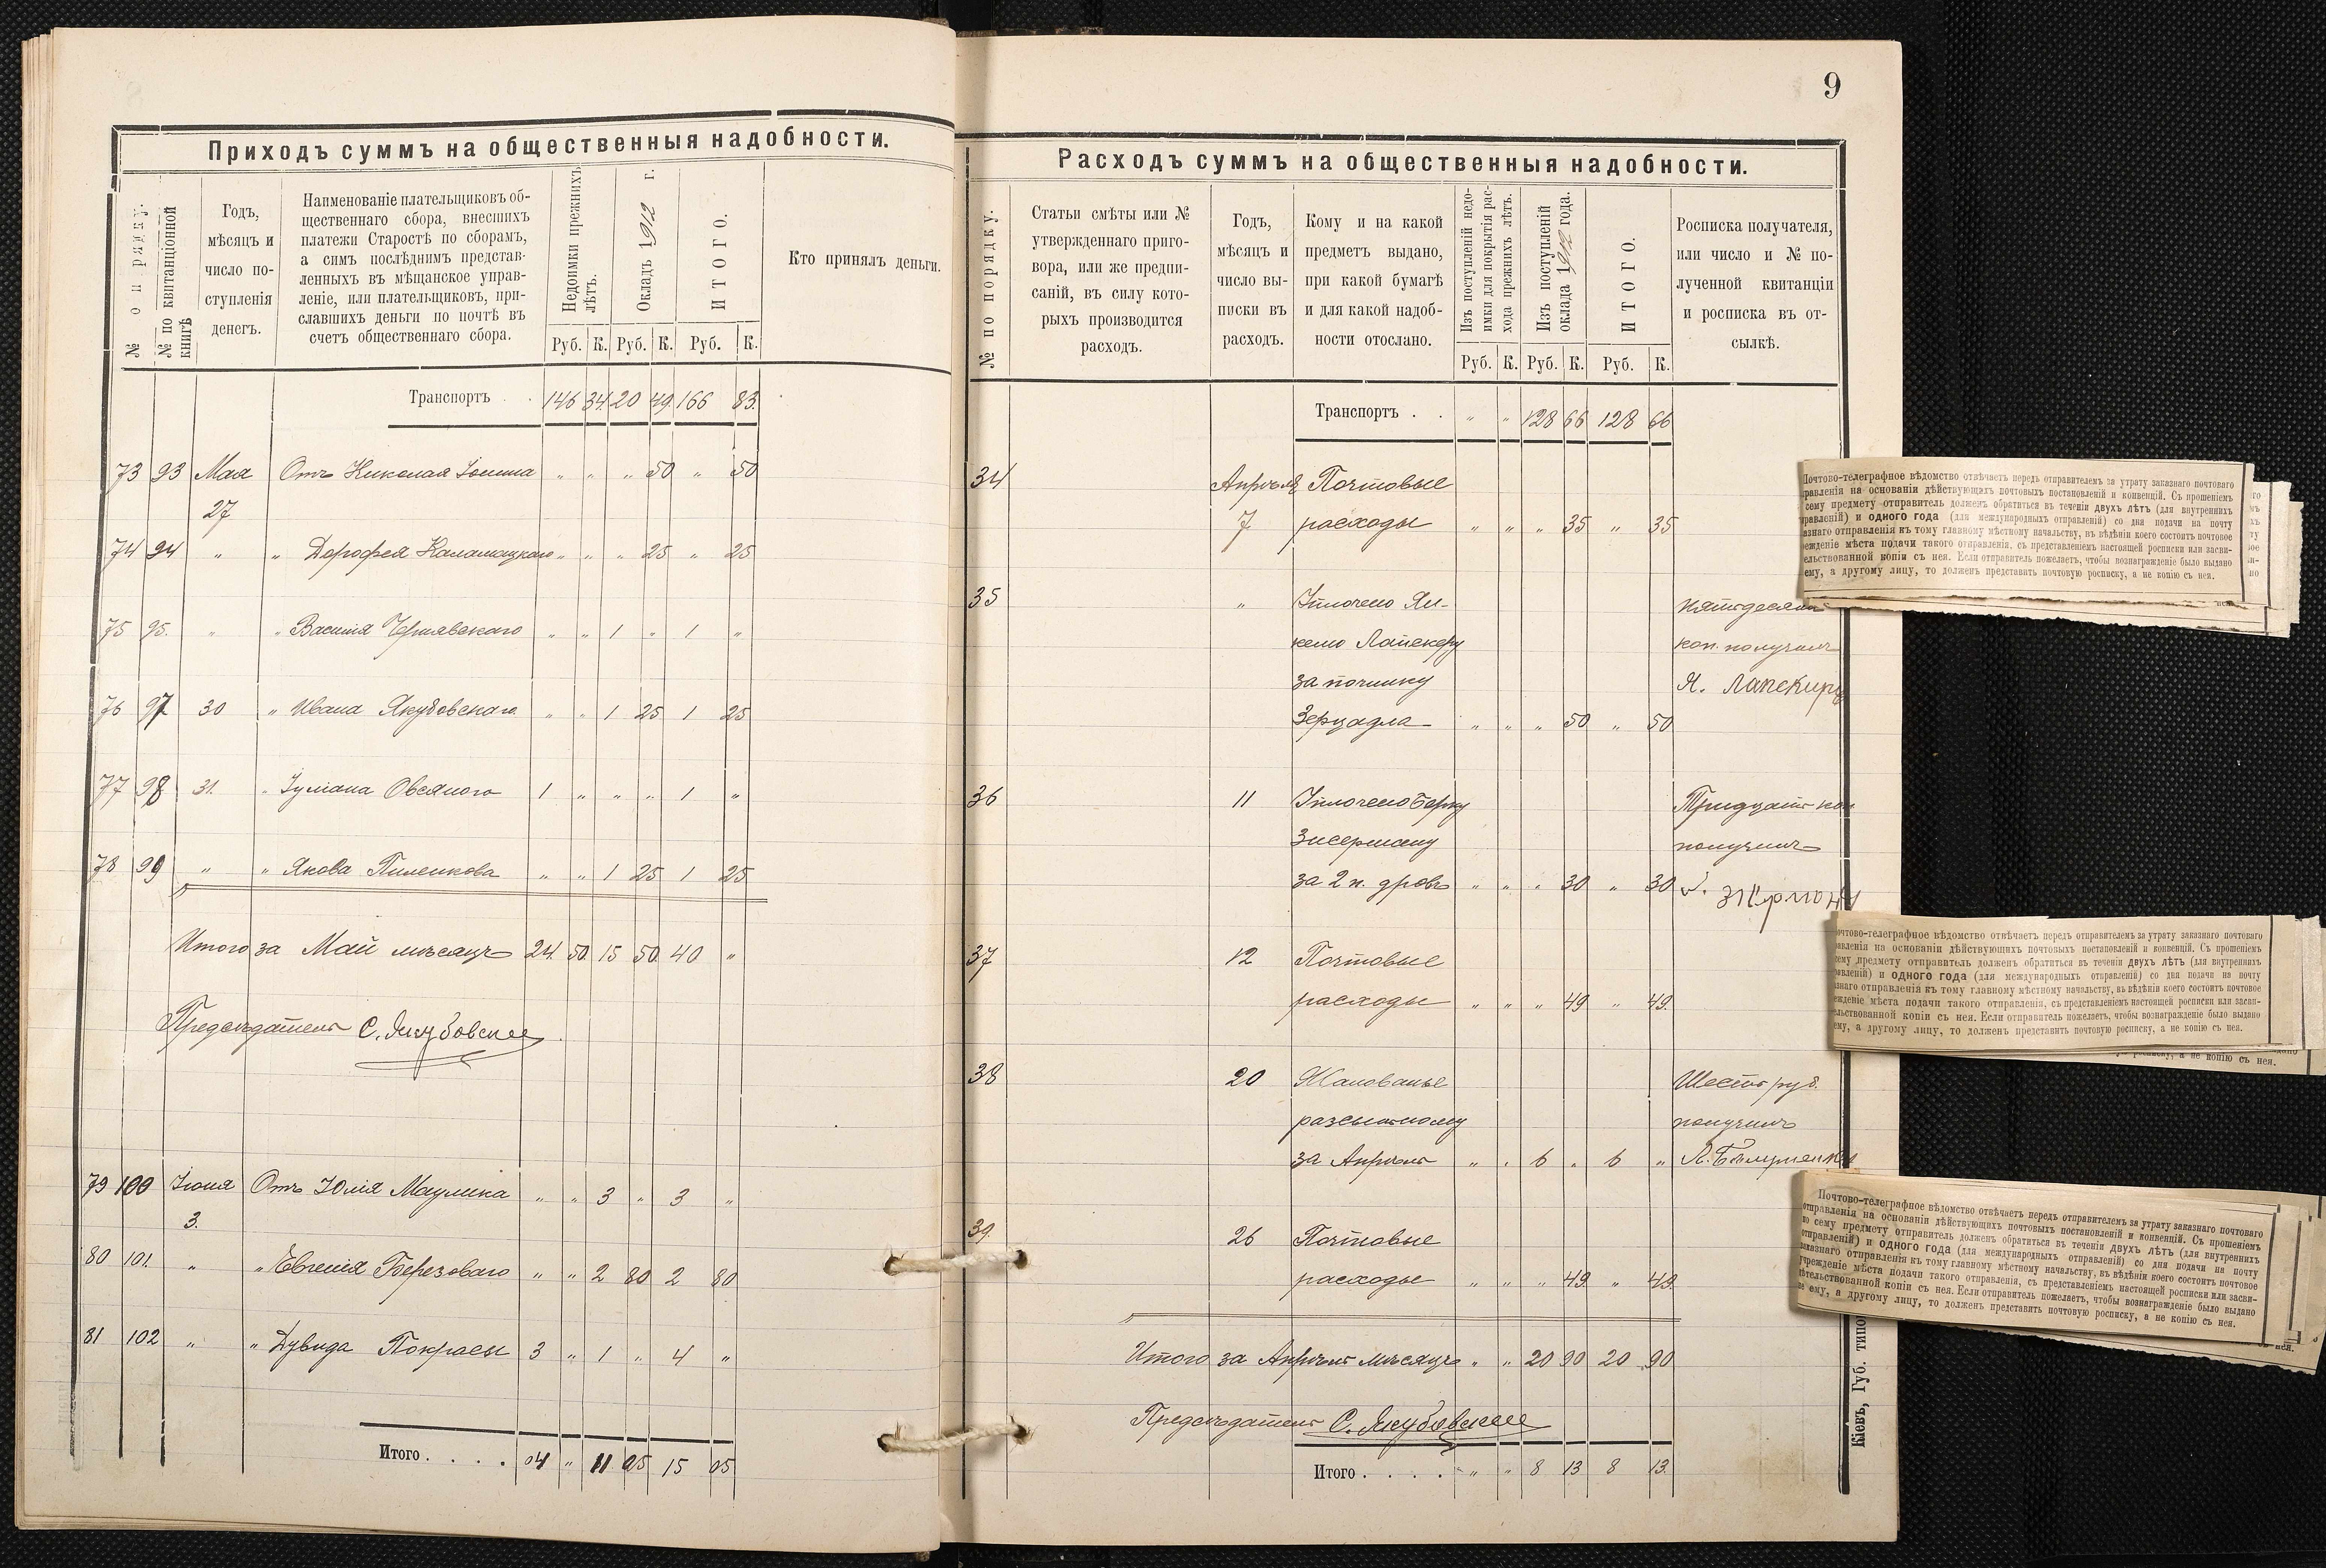 Приходъ суммъ на общественныя надобности.
№ по порядку.
№ по квитанціонной книгѣ
Годъ,
мѣсяцъ и
число по-
ступленія
денегъ.
Наименованіе плательщиковъ об-
щественнаго сбора, внесшихъ
платежи Старостѣ по сборамъ,
а симъ послѣднимъ представ-
ленныхъ въ мѣщанское управ-
леніе, или плательщиковъ, при-
славшихъ деньги по почтѣ въ
счетъ общественнаго сбора.
Недоимки прежнихъ лѣтъ.
Окладъ 1912 г.
ИТОГО.
Кто принялъ деньги.
Руб. К. Руб. К. Руб. К.
Транспортъ . . 146 34 20 49 166 83.
73 93 Мая Отъ Николая " " " 50 " 50
27
74 94 " " Дорофея " " " 25 " 25
75 95. " " Василія Чернявскаго " " 1 " 1 "
76 97 30 " Ивана Якубовскаго " " 1 25 1 25
77 98 31. " Іуліана Овсяного 1 " " " 1 "
78 99 " " Якова Пиленкова " " 1 25 1 25
Итого за Май мѣсяцъ 24 50 15 50 40 "
Предсѣдатель С. Якубовскій
79 100 Іюня Отъ Юлія Маулика " " 3 " 3 "
3.
80 101. " " Евгенія Березоваго " " 2 80 2 80
81 102 " " Дувида Покрасы 3 " 1 " 4 "
Итого . . . . 04 " 11 05 15 05
9
Расходъ суммъ на общественныя надобности.
№ по порядку.
Статьи смѣты или №
утвержденнаго приго-
вора, или же предпи-
саній, въ силу кото-
рыхъ производится
расходъ.
Годъ,
мѣсяцъ и
число вы-
писки въ
расходъ.
Кому и на какой
предметъ выдано,
при какой бумагѣ
и для какой надоб-
ности отослано.
Изъ поступленій недо-
имки для покрытія рас-
хода прежнихъ лѣтъ.
Изъ поступленій
оклада 1912 года.
ИТОГО.
Росписка получателя,
или число и № по-
лученной квитанціи
и росписка въ от-
сылкѣ.
Руб. К. Руб. К. Руб. К.
Транспортъ . . " " 128 66 128 66
34 Апрѣля Почтовые
7 расходы " " " 35 " 35
35 " Уплочено Ян-
келю Лапскеру
за починку
Зерцадла " " " 50 " 50
пятьдесятъ
коп. получилъ
Я. Лапскиръ
36 11 Уплочено Берку
за 2 п. дровъ " " " 30 " 30
Тридцать коп
получилъ
37 12 Почтовые
расходы " " " 49 " 49.
38 20 Жалованье
разсыльному
за Апрѣль " " 6 " 6 "
Шесть руб.
получилъ
39. 26 Почтовые
расходы " " " 49 " 49.
Итого за Апрѣль мѣсяцъ " " 20 90 20 90
Предсѣдатель С. Якубовскій
Итого . . . . " " 8 13 8 13.
Кіевъ, Губ. типо
Почтово-телеграфное вѣдомство отвѣчаетъ передъ отправителемъ за утрату заказнаго почтоваго
правленія на основаніи дѣйствующихъ почтовыхъ постановленій и конвенцій. Съ прошеніемъ
сему предмету отправитель долженъ обратиться въ теченіи двухъ лѣтъ (для внутреннихъ
правленій) и одного года (для международныхъ отправленій) со дня подачи на почту
азнаго отправленія къ тому главному мѣстному начальству, въ вѣдѣніи коего состоитъ почтовое
ежденіе мѣста подачи такого отправленія, съ представленіемъ настоящей росписки или засви-
ельствованной копіи съ нея. Если отправитель пожелаетъ, чтобы вознагражденіе было выдано
ему, а другому лицу, то долженъ представить почтовую росписку, а не копію съ нея.
очтово-телеграфное вѣдомство отвѣчаетъ передъ отправителемъ за утрату заказнаго почтоваго
авленія на основаніи дѣйствующихъ почтовыхъ постановленій и конвенцій. Съ прошеніемъ
ему предмету отправитель долженъ обратиться въ теченіи двухъ лѣтъ (для внутреннихъ
авленій) и одного года (для международныхъ отправленій) со дня подачи на почту
знаго отправленія къ тому главному мѣстному начальству, въ вѣдѣніи коего состоитъ почтовое
жденіе мѣста подачи такого отправленія, съ представленіемъ настоящей росписки или засви-
льствованной копіи съ нея. Если отправитель пожелаетъ, чтобы вознагражденіе было выдано
ему, а другому лицу, то долженъ представить почтовую росписку, а не копію съ нея.
росписку, а не копію съ нея.
Почтово-телеграфное вѣдомство отвѣчаетъ передъ отправителемъ за утрату заказнаго почтоваго
отправленія на основаніи дѣйствующихъ почтовыхъ постановленій и конвенцій. Съ прошеніемъ
по сему предмету отправитель долженъ обратиться въ теченіи двухъ лѣтъ (для внутреннихъ
отправленій) и одного года (для международныхъ отправленій) со дня подачи на почту
заказнаго отправленія къ тому главному мѣстному начальству, въ вѣдѣніи коего состоитъ почтовое
учрежденіе мѣста подачи такого отправленія, съ представленіемъ настоящей росписки или засви-
дѣтельствованной копіи съ нея. Если отправитель пожелаетъ, чтобы вознагражденіе было выдано
не ему, а другому лицу, то долженъ представить почтовую росписку, а не копію съ нея.